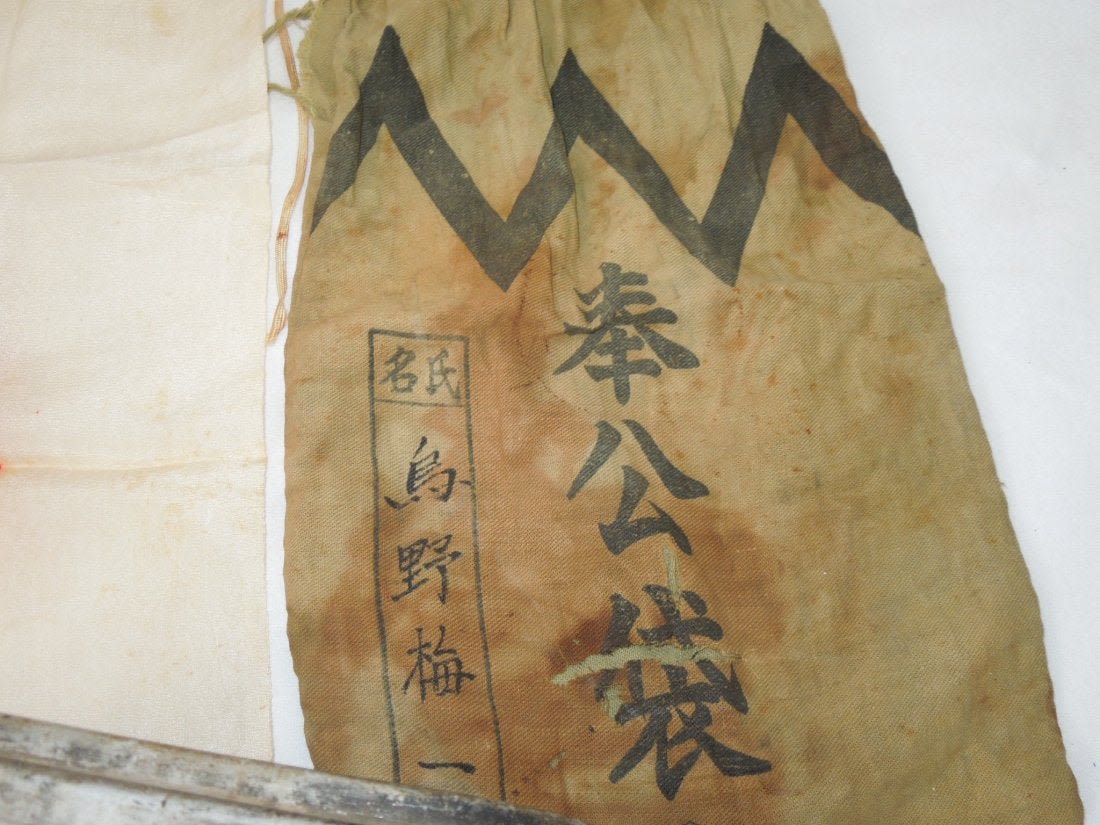 奉公袋
氏名
烏野梅一